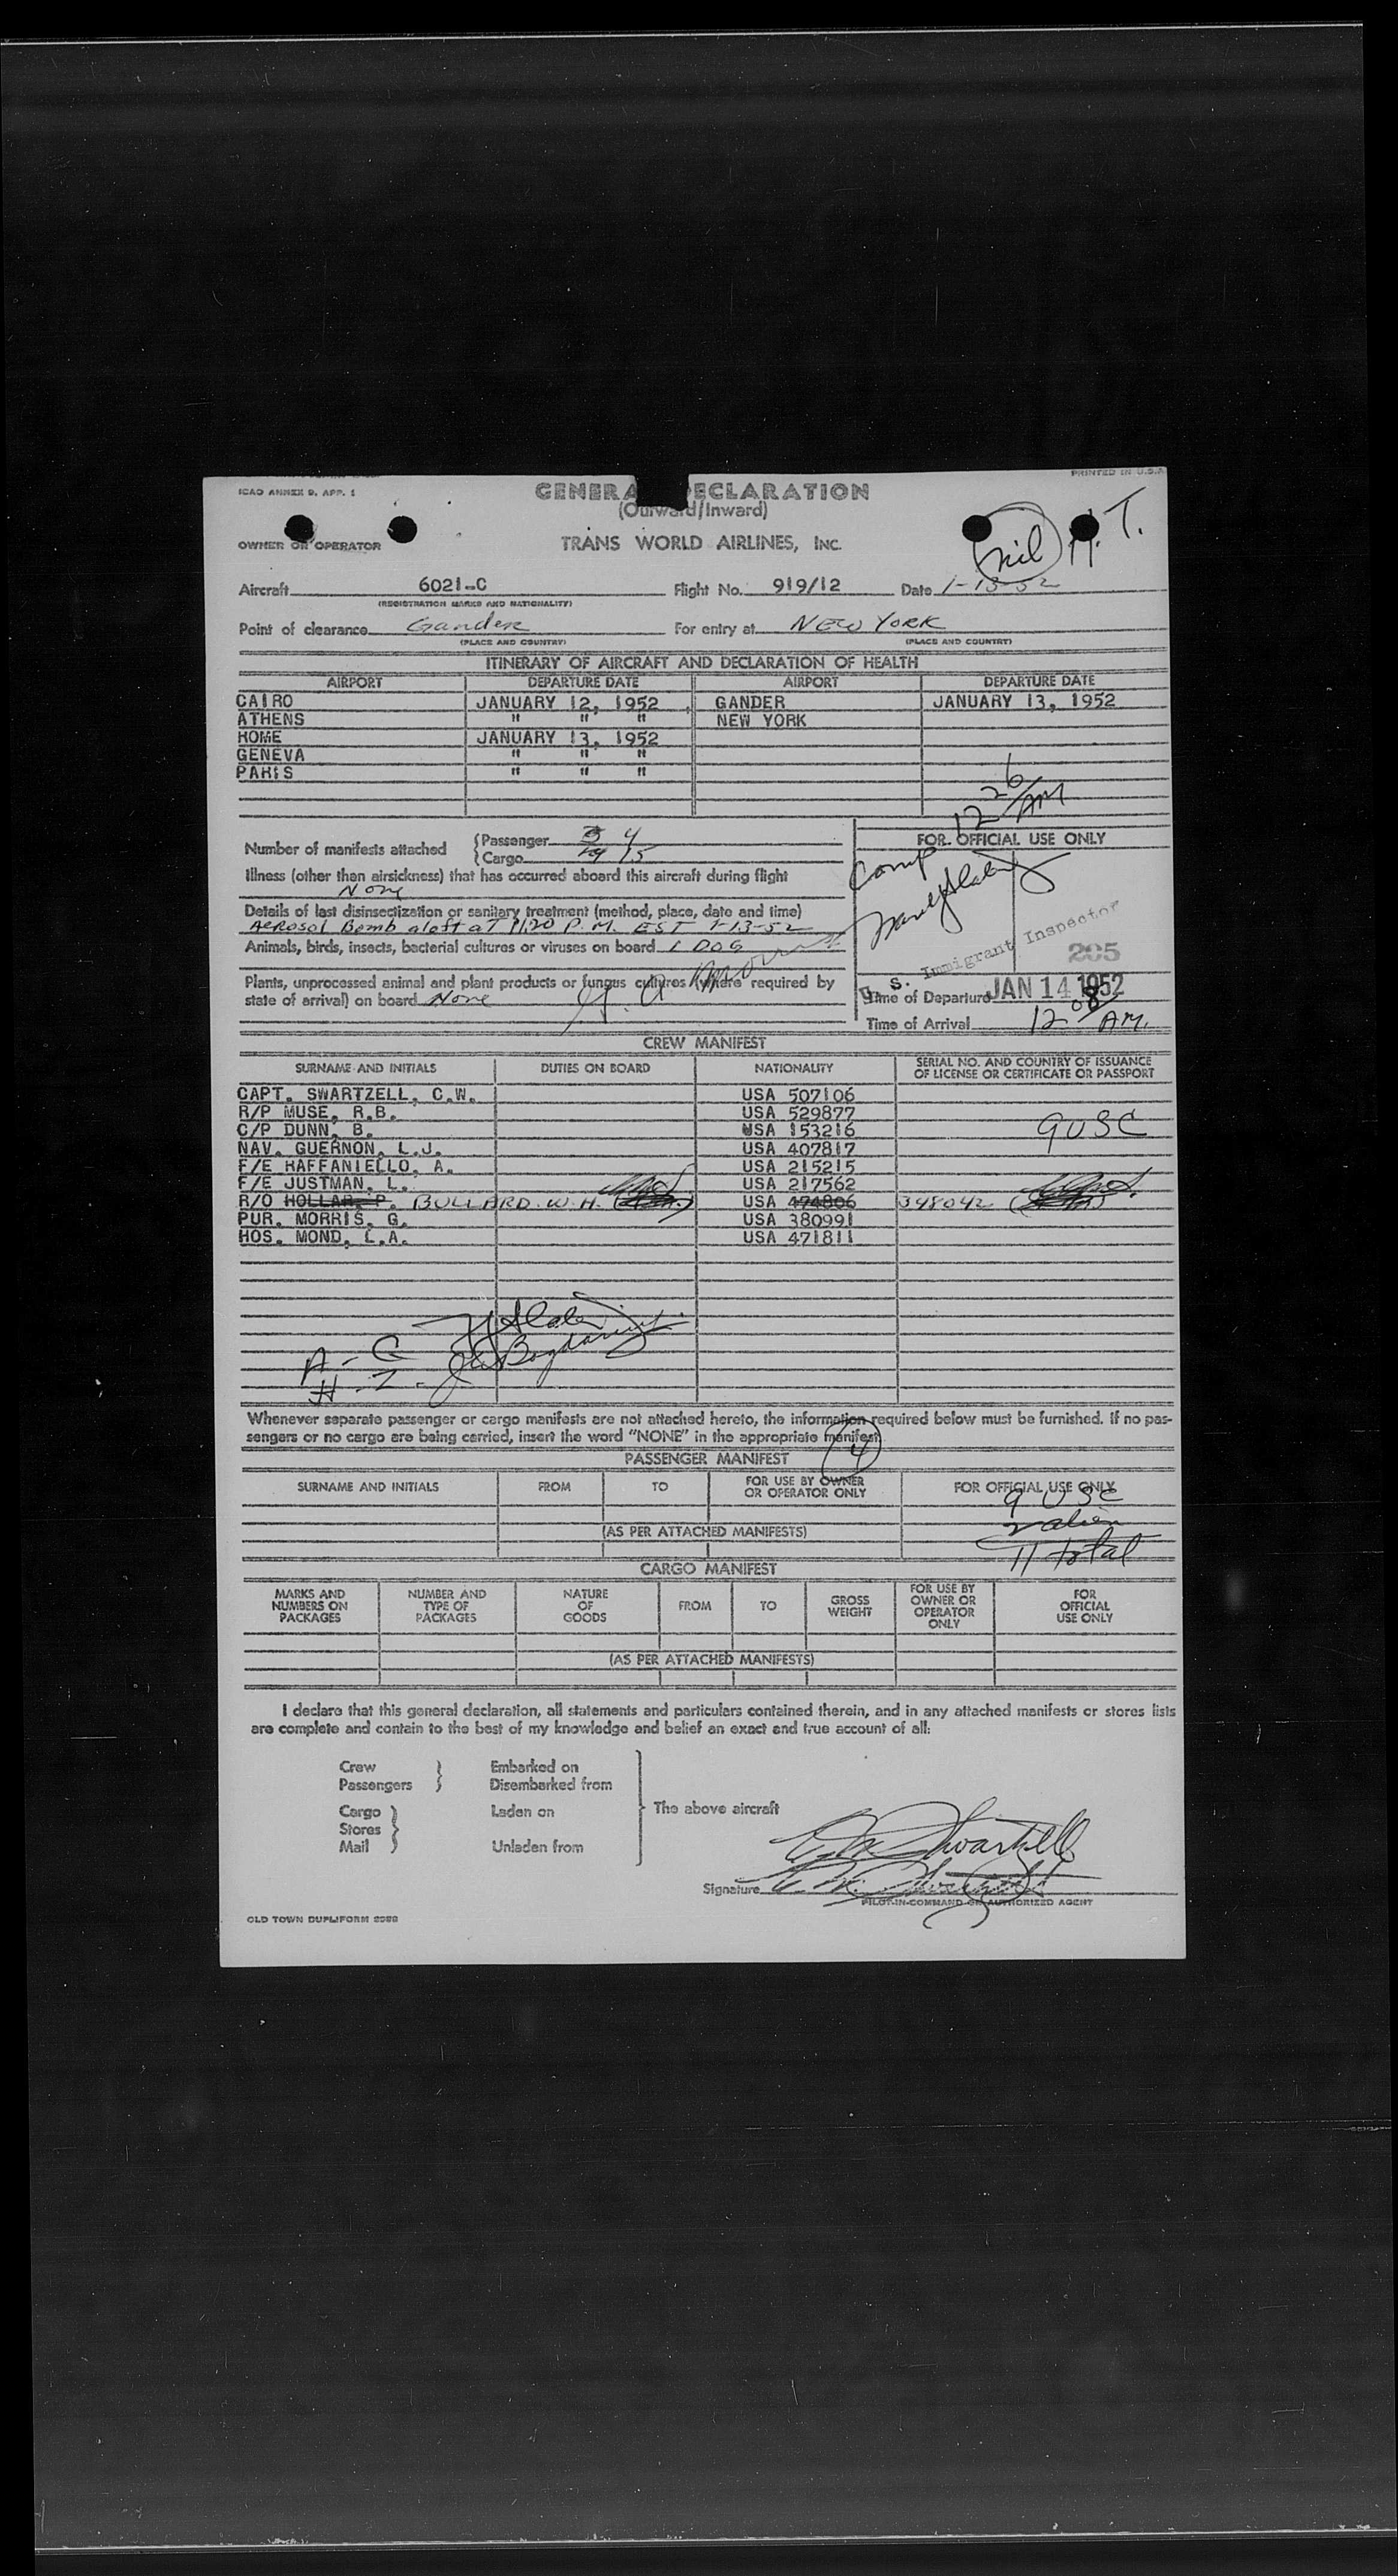 PRINTED IN U.S.A.
ICAO ANNEX 9, APP. 1
GENERA ECLARATION
(Outward/Inward)
nil H. T.
OWNER OR OPERATOR TRANS WORLD AIRLINES, INC.
Aircraft 6021-C Flight No. 919/12 Date 1-13-52
(REGISTRATION MARKS AND NATIONALITY)
Point of clearance Gander For entry at NEW YORK
(PLACE AND COUNTRY) (PLACE AND COUNTRY)
ITINERARY OF AIRCRAFT AND DECLARATION OF HEALTH
AIRPORT DEPARTURE DATE AIRPORT DEPARTURE DATE
CAIRO JANUARY 12, 1952 GANDER JANUARY 13, 1952
ATHENS " " " NEW YORK
ROME JANUARY 13, 1952
GENEVA " " "
PARIS " " "
12 26 AM
Number of manifests attached {Passenger 3 4
{Cargo 14 15
FOR OFFICIAL USE ONLY
Comp
Illness (other than airsickness) that has occurred aboard this aircraft during flight
None
Details of last disinsectization or sanitary treatment (method, place, date and time)
Aerosol Bomb aloft at 11:20 P.M. EST 1-13-52
Animals, birds, insects, bacterial cultures or viruses on board 1 DOG
U. S. Immigrant Inspector
205
Plants, unprocessed animal and plant products or fungus cultures (where required by
state of arrival) on board None
Time of Departure JAN 14 1952
Time of Arrival 12 08 AM.
CREW MANIFEST
SURNAME AND INITIALS DUTIES ON BOARD NATIONALITY SERIAL NO. AND COUNTRY OF ISSUANCE OF LICENSE OR CERTIFICATE OR PASSPORT
CAPT. SWARTZELL, C.W. USA 507106
R/P MUSE, R.B. USA 529877
C/P DUNN, B. USA 153216 9 USC
NAV. GUERNON, L.J. USA 407817
F/E RAFFANIELLO, A. USA 215215
F/E JUSTMAN, L. USA 217562
R/O HOLLAR, P. BULLARD. W.H. USA 474806 348042
PUR. MORRIS, G. USA 380991
HOS. MOND, L.A. USA 471811
A - G
H - Z -
Whenever separate passenger or cargo manifests are not attached hereto, the information required below must be furnished. If no pas-
sengers or no cargo are being carried, insert the word "NONE" in the appropriate manifest.
4
PASSENGER MANIFEST
SURNAME AND INITIALS FROM TO FOR USE BY OWNER OR OPERATOR ONLY FOR OFFICIAL USE ONLY
9 USC
2 alien
(AS PER ATTACHED MANIFESTS)
11 total
CARGO MANIFEST
MARKS AND NUMBERS ON PACKAGES NUMBER AND TYPE OF PACKAGES NATURE OF GOODS FROM TO GROSS WEIGHT FOR USE BY OWNER OR OPERATOR ONLY FOR OFFICIAL USE ONLY
(AS PER ATTACHED MANIFESTS)
I declare that this general declaration, all statements and particulars contained therein, and in any attached manifests or stores lists
are complete and contain to the best of my knowledge and belief an exact and true account of all:
Crew } Embarked on
Passengers } Disembarked from
Cargo } Laden on The above aircraft
Stores
Mail } Unladen from
C. W. Swartzell
Signature
PILOT-IN-COMMAND OR AUTHORIZED AGENT
OLD TOWN DUPLIFORM